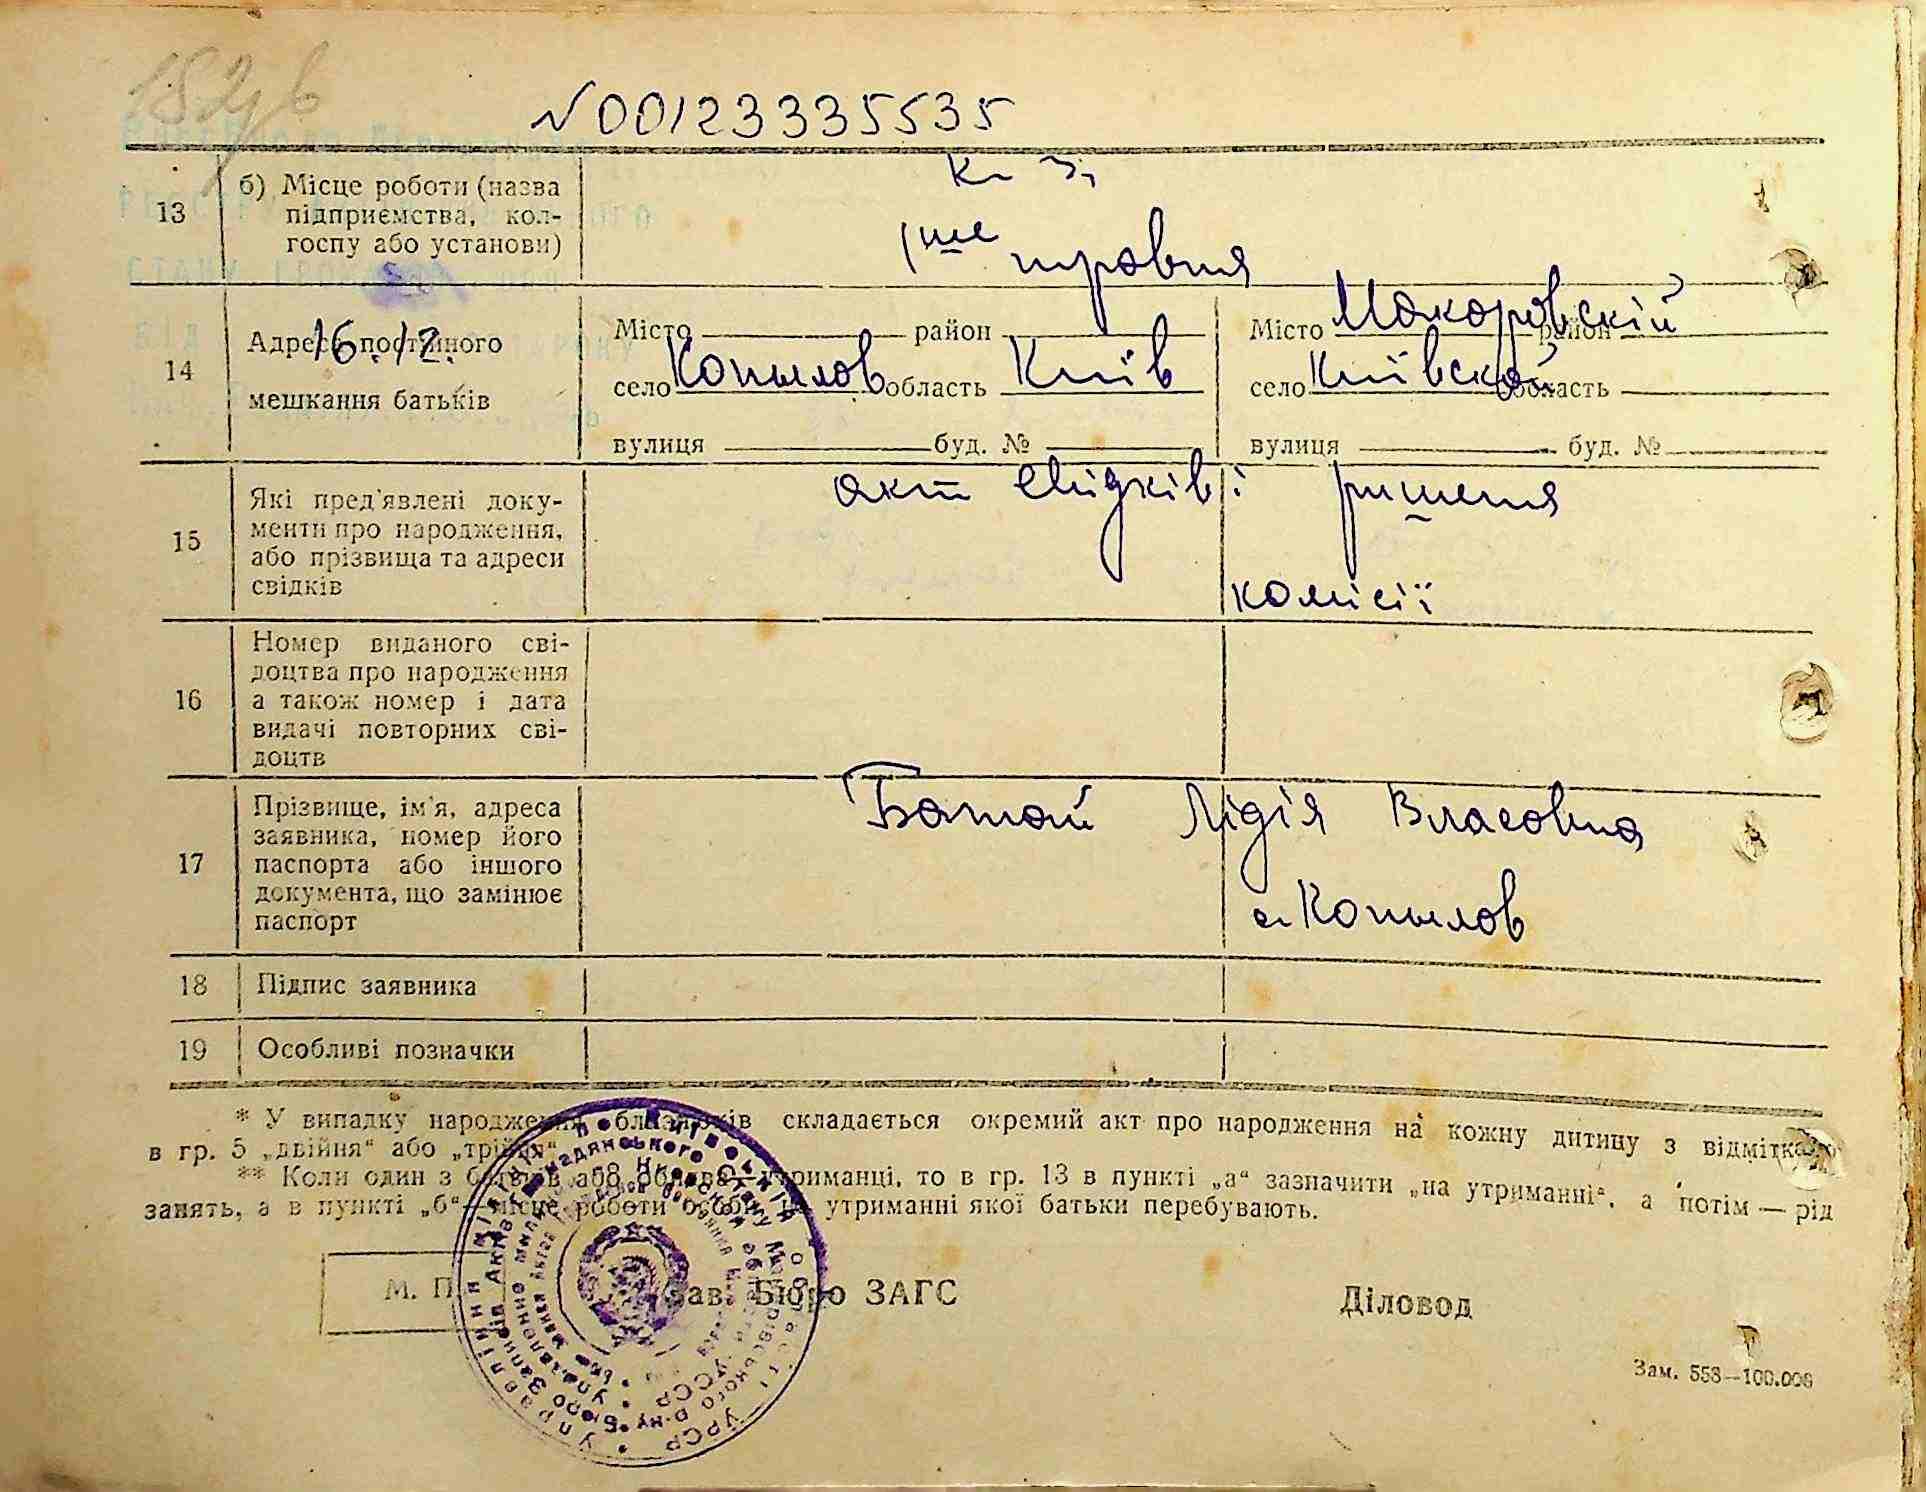 N00123335535
13
б) Місце роботи (назва
підприємства, кол-
госпу або установи)
1ше травня
14
Адреса постійного
16.12.
мешкання батьків
Місто район
село Копылов область Київ
вулиця буд. №
Місто Макоровскій район
село Київской область
вулиця буд. №
15
Які пред'явлені доку-
менти про народження,
або прізвища та адреси
свідків
акт свідків і ришення
комісії
16
Номер виданого сві-
доцтва про народження
а також номер і дата
видачі повторних сві-
доцтв
17
Прізвище, ім'я, адреса
заявника, номер його
паспорта або іншого
документа, що замінює
паспорт
Лідія Власовна
с. Копылов
18
Підпис заявника
19
Особливі позначки
* У випадку народження близнюків складається окремий акт про народження на кожну дитину з відміткою
в гр. 5 „двійня“ або „трійня“.
** Коли один з батьків або обидва—утриманці, то в гр. 13 в пункті „а“ зазначити „на утриманні“, а потім — рід
занять, а в пункті „б“—місце роботи особи, на утриманні якої батьки перебувають.
М. П.
Зав. Бюро ЗАГС
Діловод
Зам. 558—100.000